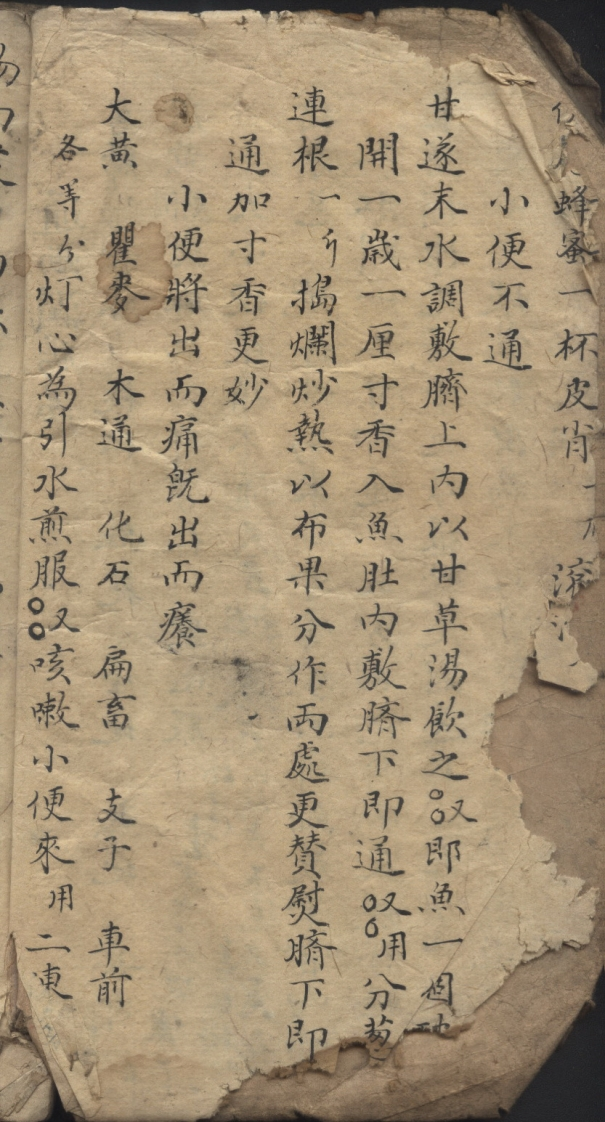 蜂蜜一杯皮肖一
小便不通
甘遂末水調敷臍上内以甘草湯飲之又即魚一個
開一歳一厘寸香入魚肚内敷臍下即通又用分
連根一斤搗爛炒熱以布果分作両處更賛熨臍下即
通加寸香更妙
小便將出而痛既出而癢
大黄 瞿麥 木通 化石 扁畜 支子 車前
各等分灯心為引水煎服 又咳嗽小便來用二東